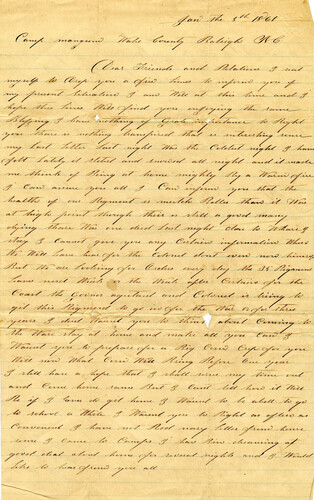 Jan the 5st 1861
Camp mangrum Wake County Raleigh N C
Dear Friends and Relation I Sat
myself to Drop you a few lines to inform you of
my present Situation I am Well at this time and I
hope these lines Will find you enjoying the same
Blessing I have nothing of Grate importance to Right
you there is nothing transpired that is interesting since
my last letter last night Was the Coldest night I have
felt lately it sleted and snowed all night and it made
me think of Being at home mighty By a Warm fire
I Can assure you all I Can inform you that the
healths of our Regiment is mutch Better than it Was
at high point though their is still a good many
dying there Was one died last night Close to Whare I
stay I cannot give you any Certain information When
We Will leave hear for the Colonel dont even now himself
But We are looking for Orders evry day the 33 Regiment
leave next Week on the Male after Certain for the
Coast the Govner agetant and Colonel is trying to
get this Regiment to go in for the War or for three
years I dont Want you to think about Coming to
the War stay at home and make all you Can I
Want you to prepare for a Big Corn Crop for you
Will now What Corn Will Bring Before you
I still have a hope that I shall serve my time out
and Come home same But I Cant tell how it Will
Be if I Can do get home I Want to be abell to go
to school a While I Want you to Right as often as
Convenient I have not Red nary letter from home
since I came to Camp I has Bin dreaming a
good deal about home for several nights and I Would
like to hear from you all